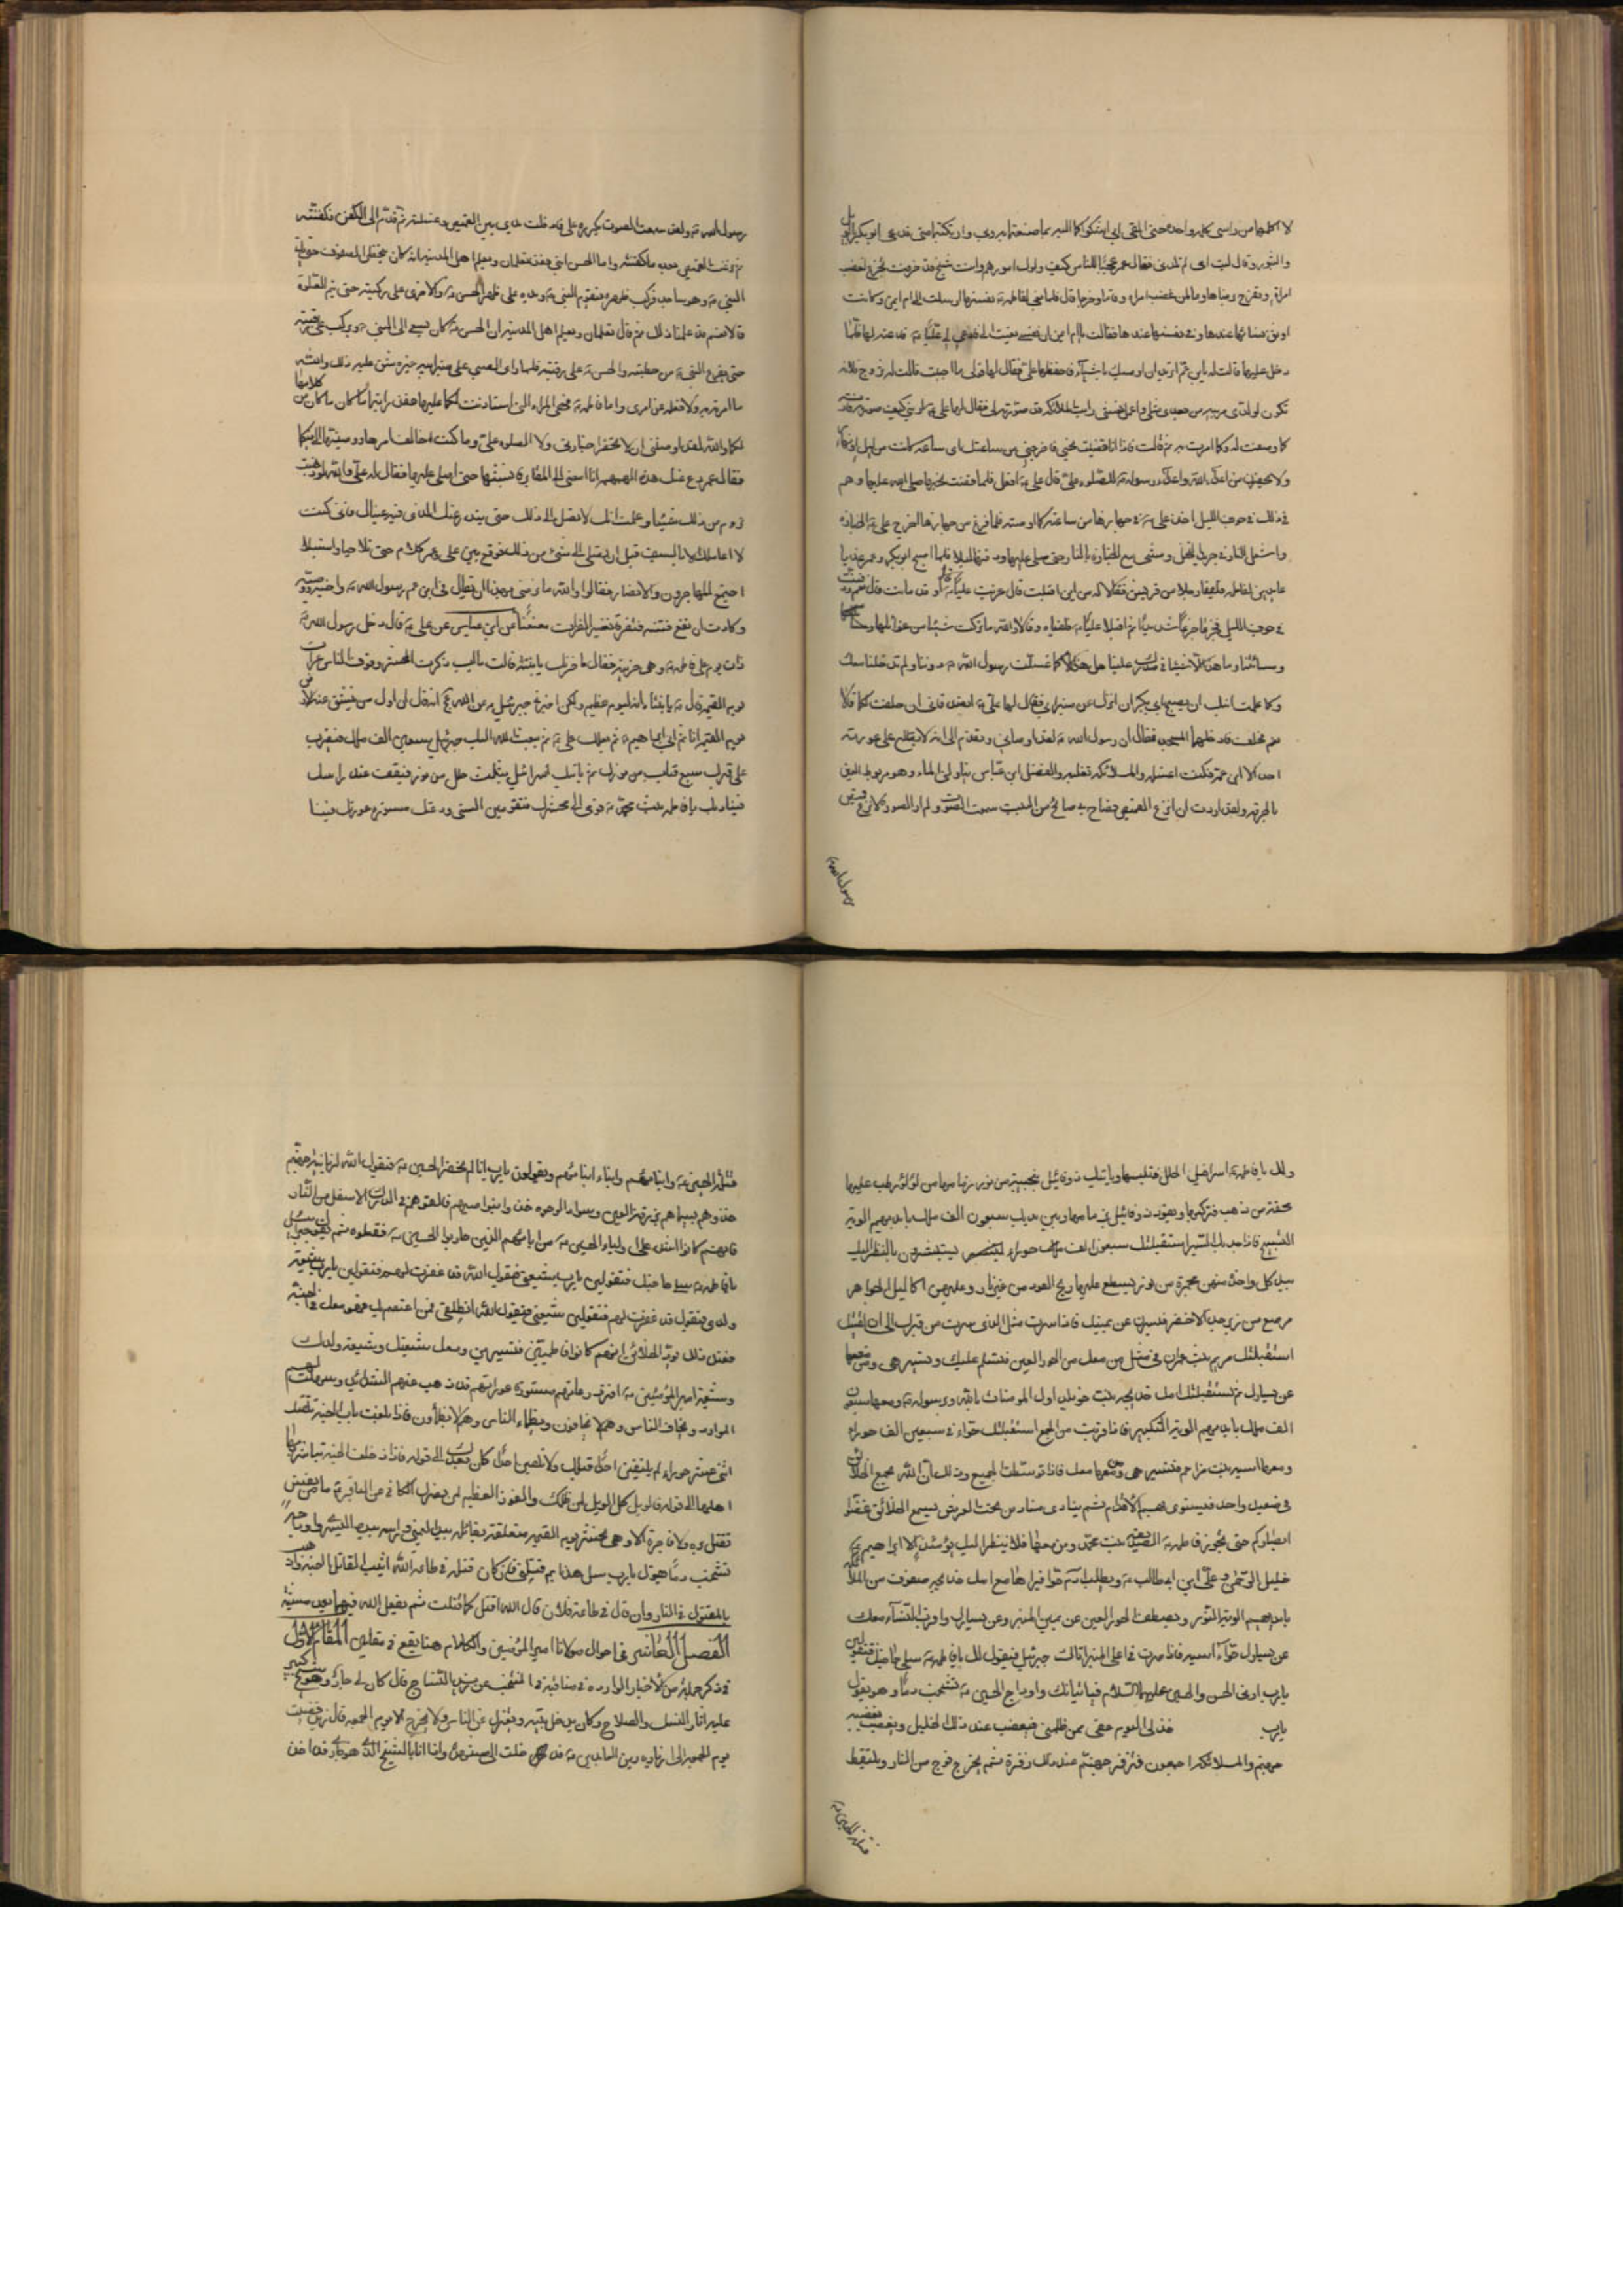 لا اكلمها من راسي كلمة واحدة حتى التقي ابي اشكوكما اليه بما صنعتما بي وارتكبتما مني فدعى ابو بكر بالويل
والثبور وقال ليت امي لم تلدني فقال عمر عجبا للناس كيف ولوك امورهم وانت شيخ قد خرفت تجزع لغضب
امراة وتفرح برضاها وما لمن غضب امراة وقاما وخرجا قال فلما نعي لفاطمة نفسها ارسلت الى ام ايمن وكانت
اوثق نسائها عندها وفي نفسها عندها فقالت يا ام ايمن ان نفسي نعيت الي فادعي لي عليا فدعته لها فلما
دخل عليها قالت له يابن عم اريد ان اوصيك باشياء فاحفظها علي فقال لها قولي ما احببت قالت له تزوج فلانة
تكون لولدي مربية من بعدي مثلي واعمل نعشي رايت الملائكة قد صورته لي فقال لها علي اريني كيف صورته فارته
كما وصفت له وكما امرت به ثم قالت فاذا انا قضيت نحبي فاخرجني من ساعتك اي ساعة كانت من ليل او نهار
ولا يحضرن من اعداء الله واعداء رسوله للصلوة علي قال علي افعل فلما قضت نحبها صلى الله عليها وهم
في ذلك في جوف الليل اخذ علي في جهازها من ساعته كما اوصته فلما فرغ من جهازها اخرج علي الجنازة
واشعل النار في جريد النخل ومشى مع الجنازة بالنار حتى صلى عليها ودفنها ليلا فلما اصبح ابو بكر وعمر عاودا
عايدين لفاطمة فلقيا رجلا من قريش فقالا له من اين اقبلت قال عزيت عليا بفاطمة قالا وقد ماتت قال نعم ودفنت
في جوف الليل فجزعا جزعا شديدا ثم اقبلا الى علي فلقياه وقالا والله ما تركت شيئا من غوائلنا
ومسائتنا وما هذا الا لشيء في صدرك علينا هل هذا الا كما غسلت رسول الله دوننا ولم تدخلنا معك
وكما علمت ابنك ان يصيح بابي بكر ان انزل عن منبر ابي فقال لهما علي اتصدقاني ان حلفت لكما قالا
نعم فحلف فادخلهما المسجد فقال ان رسول الله لقد اوصاني وتقدم الي انه لا يطلع على عورته
احد الا ابن عمه فكنت اغسله والملائكة تقلبه والفضل ابن عباس يناولني الماء وهو مربوط العينين
بالخرقة ولقد اردت ان انزع القميص فصاح بي صائح من البيت سمعت الصوت ولم ار الصورة لا تنزع قميص
رسول الله
رسول الله ولقد سمعت الصوت يكرره علي فادخلت يدي من بين القميص وغسلته ثم قدم الي الكفن فكفنته
ثم نزعت القميص بعد ما كفنته واما الحسن ابني فقد تعلمان ويعلم اهل المدينة انه كان يتخطى الصفوف حتى ياتي
النبي وهو ساجد فيركب ظهره فيقوم النبي ويده على ظهر الحسن والاخرى على ركبته حتى يتم الصلوة
قالا نعم قد علمنا ذلك ثم قال تعلمان ويعلم اهل المدينة ان الحسن كان يسعى الى النبي ويركب على رقبته
حتى يفرغ النبي من خطبته والحسن على رقبته فلما راى الصبي على منبر ابيه غيره شق عليه ذلك والله
ما امرته به ولا فعله عن امري واما فاطمة فهي المراة التي استاذنت لكما عليها فقد رايتما ما كان من كلامها
لكما والله لقد اوصتني ان لا تحضرا جنازتها ولا الصلوة عليها وما كنت اخالف امرها ووصيتها الي فيكما
فقال عمر دع عنك هذه الهمهمة انا امضي الى المقابر فانبشها حتى اصلي عليها فقال له علي والله لو ذهبت
تروم من ذلك شيئا وعلمت انك لا تصل الى ذلك حتى يندر عنك الذي فيه عيناك فاني كنت
لا اعاملك الا بالسيف قبل ان تصل الى شيء من ذلك فوقع بين علي وعمر كلام حتى تلاحيا واستبسلا
اجتمع المهاجرون والانصار فقالوا والله ما نرضى بهذا ان يقال في ابن عم رسول الله واخيه ووصيه
وكادت ان تقع فتنة فتفرقا تفسير الفرات معنعنا عن ابن عباس عن علي قال دخل رسول الله
ذات يوم على فاطمة وهي حزينة فقال ما حزنك يا بنية قالت يا ابت ذكرت المحشر ووقوف الناس عراة
يوم القيمة قال يا بنية انه ليوم عظيم ولكن اخبرني جبرئيل عن الله انه قال ان اول من ينشق عنه الارض
يوم القيمة انا ثم ابي ابراهيم ثم بعلك علي ثم يبعث الله اليك جبرئيل بسبعين الف ملك فيضرب
على قبرك سبع قباب من نور ثم ياتيك اسرافيل بثلث حلل من نور فيقف عند راسك
فيناديك يا فاطمة بنت محمد قومي الى محشرك فتقومين امنة روعتك مستورة عورتك فينا
ولك يا فاطمة اسرافيل الحلل فتلبسها وياتيك زوقائيل بنجيبة من نور زمامها من لؤلؤ رطب عليها
محفة من ذهب فتركبيها ويقود زوقائيل بزمامها وبين يديك سبعون الف ملك بايديهم الوية
التسبيح فاذا جد بك السير استقبلتك سبعون الف حوراء يستبشرون بالنظر اليك
بيد كل واحدة منهن مجمرة من نور يسطع عليها ريح العود من غير نار وعليهن اكاليل الجواهر
مرصع من زبرجد الاخضر فيسرن عن يمينك فاذا سرت مثل الذي سرت من قبرك الى ان لقيتك
استقبلتك مريم بنت عمران في مثل من معك من الحور العين فتسلم عليك وتسير هي ومن معها
عن يسارك ثم تستقبلك امك خديجة بنت خويلد اول المومنات بالله ورسوله ومعها سبعون
الف ملك بايديهم الوية التكبير فاذا قربت من الجمع استقبلتك حواء في سبعين الف حوراء
ومعها اسية بنت مزاحم فتسير هي ومن معها معك فاذا توسطت الجمع وذلك ان الله يجمع الخلائق
في صعيد واحد فيستوي بهم الاقدام ثم ينادي مناد من تحت العرش يسمع الخلائق غضوا
ابصاركم حتى تجوز فاطمة الصديقة بنت محمد ومن معها فلا ينظر اليك يومئذ الا ابراهيم
خليل الرحمن وعلي ابن ابي طالب ويطلب ادم حوا فيراها مع امك خديجة صفوف من الملائكة
بايديهم الوية النور ويصطف الحور العين عن يمين المنبر وعن يساره واقرب النساء معك
عن يسارك حواء واسية فاذا صرت في اعلى المنبر اتاك جبرئيل فيقول لك يا فاطمة سلي حاجتك فتقولين
يا رب ارني الحسن والحسين عليهما السلام فياتيانك واوداج الحسين تشخب دما وهو يقول
يا رب خذ لي اليوم حقي ممن ظلمني فيغضب عند ذلك الجليل ويغضب لغضبه
جهنم والملائكة اجمعون فتزفر جهنم عند ذلك زفرة ثم يخرج فوج من النار ويلتقط
قتلة الحسين
قتلة الحسين وابنائهم وابناء ابنائهم ويقولون يا رب انا لم نحضر الحسين فيقول الله لزبانية جهنم
خذوهم بسيماهم بزرقة العيون وسواد الوجوه خذوا بنواصيهم فالقوهم في الدرك الاسفل من النار
فانهم كانوا اشد على اولياء الحسين من ابائهم الذين حاربوا الحسين فقتلوه ثم يقول جبرئيل
يا فاطمة سلي حاجتك فتقولين يا رب شيعتي فيقول الله قد غفرت لهم فتقولين يا رب شيعة
ولدي فيقول قد غفرت لهم فتقولين شيعتي فيقول الله انطلقي فمن اعتصم بك فهو معك في الجنة
فعند ذلك يود الخلائق انهم كانوا فاطميين فتسيرين ومعك شيعتك وشيعة ولدك
وشيعة امير المؤمنين امنة روعاتهم مستورة عوراتهم قد ذهب عنهم الشدائد وسهلت لهم
الموارد يخاف الناس وهم لا يخافون ويظماء الناس وهم لا يظمأون فاذا بلغت باب الجنة تلقتك
اثنى عشر حوراء لم يلتقين احدا قبلك ولا يتلقين احدا كان بعدك الى قوله فاذا دخلت الجنة تباشر بك
اهلها الى قوله الويل كل الويل لمن ظلمك والفوز العظيم لمن نصرك الكافي عن الباقر ما من نفس
تقتل برة ولا فاجرة الا وهي تحشر يوم القيمة متعلقة بقاتله بيده اليمنى وراسه بيده اليسرى واوداجه
تشخب دما يقول يا رب سل هذا بم قتلني فان كان قتله في طاعة الله اثيب القاتل الجنة وذهب
بالمقتول في النار وان قال في طاعة فلان قال الله اقتله كما قتلت ثم يفعل الله فيهما بعد مشيته
الفصل العاشر في احوال مولانا امير المؤمنين والكلام هنا يقع في مقامين المقام الاول
في ذكر جملة من الاخبار الواردة في مناقبه في المنتخب عن يزيد النساج قال كان لي جار وهو شيخ كبير
عليه اثار النسك والصلاح وكان يدخل بيته ويعتزل عن الناس ولا يخرج الا يوم الجمعة قال زيد فمضيت
يوم الجمعة الى زيارة زين العابدين فدخلت الى مشهده واذا انا بالشيخ الذي هو جاري قد اخذ